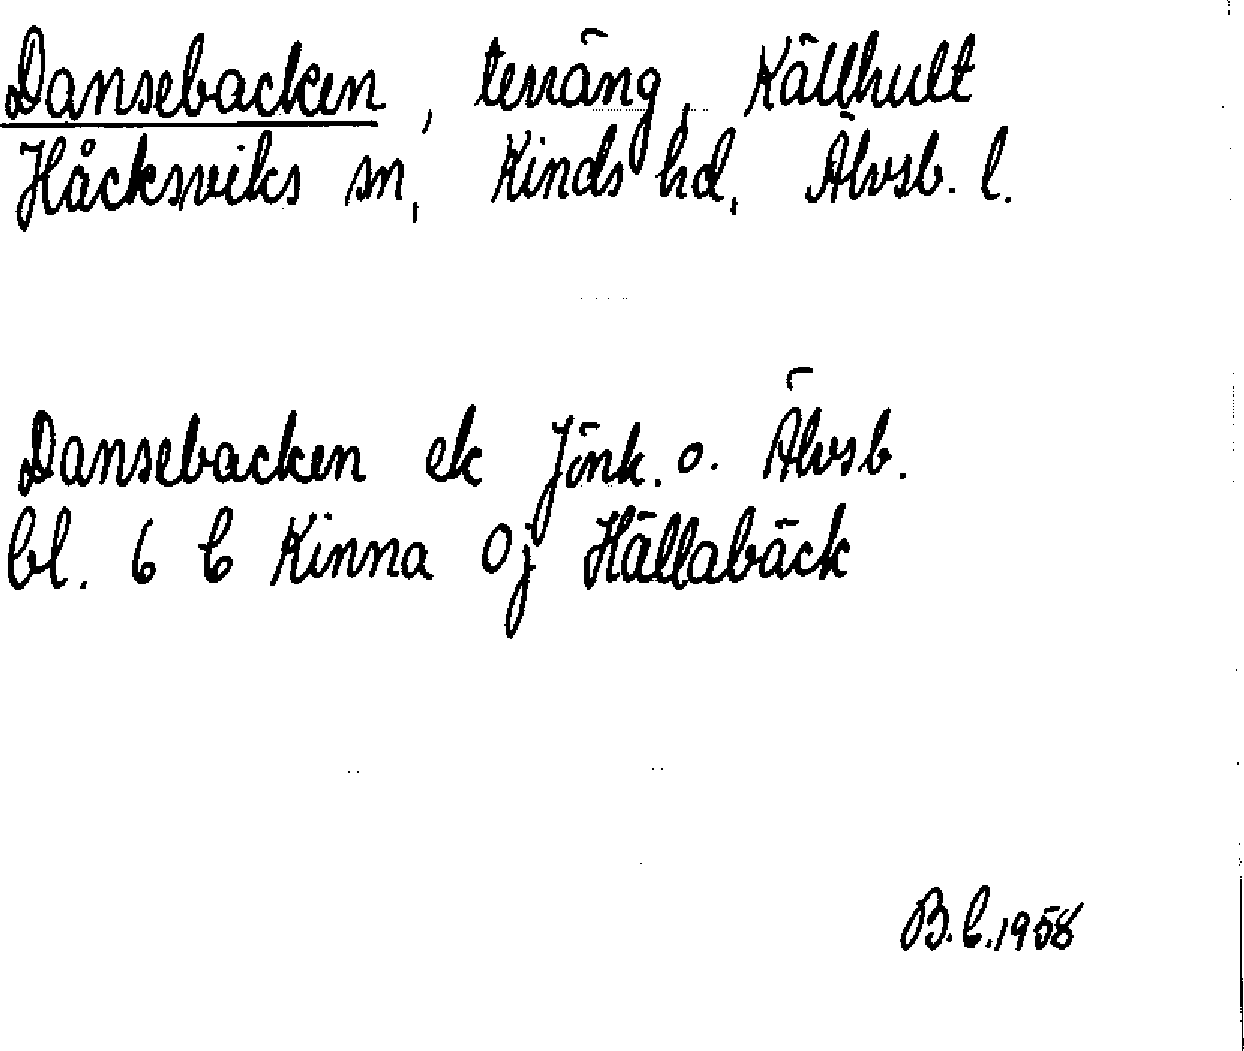 Dansebacken, terräng, Källhult
Håcksviks sn, Kinds hd, Älvsb. l.
Dansebacken ek Jönk. o. Älvsb.
bl. 6 C Kinna 0j Hällabäck
B.C. 1958